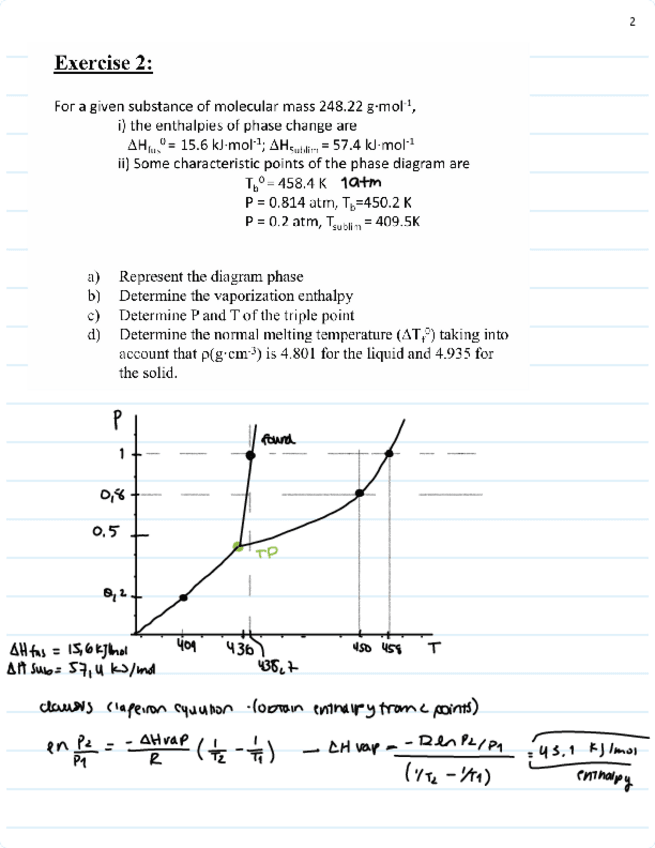 2
Exercise 2:
For a given substance of molecular mass 248.22 g·mol⁻¹,
i) the enthalpies of phase change are
ΔH_fus⁰ = 15.6 kJ·mol⁻¹; ΔH_sublim = 57.4 kJ·mol⁻¹
ii) Some characteristic points of the phase diagram are
T_b⁰ = 458.4 K 1atm
P = 0.814 atm, T_b=450.2 K
P = 0.2 atm, T_sublim = 409.5K
a) Represent the diagram phase
b) Determine the vaporization enthalpy
c) Determine P and T of the triple point
d) Determine the normal melting temperature (ΔT_f⁰) taking into
account that ρ(g·cm⁻³) is 4.801 for the liquid and 4.935 for
the solid.
P
found
1
0,8
0.5
TP
0,2
409 436 450 458 T
ΔH fus = 15,6 kJ/mol
ΔH sub = 57,4 kJ/mol
clausius clapeiron equation - (obtain enthalpy from 2 points)
en P2/P1 = -ΔHvap/R (1/T2 - 1/T1) → ΔH vap = -R en P2/P1 / (1/T2 - 1/T1) = 43,1 kJ/mol
enthalpy